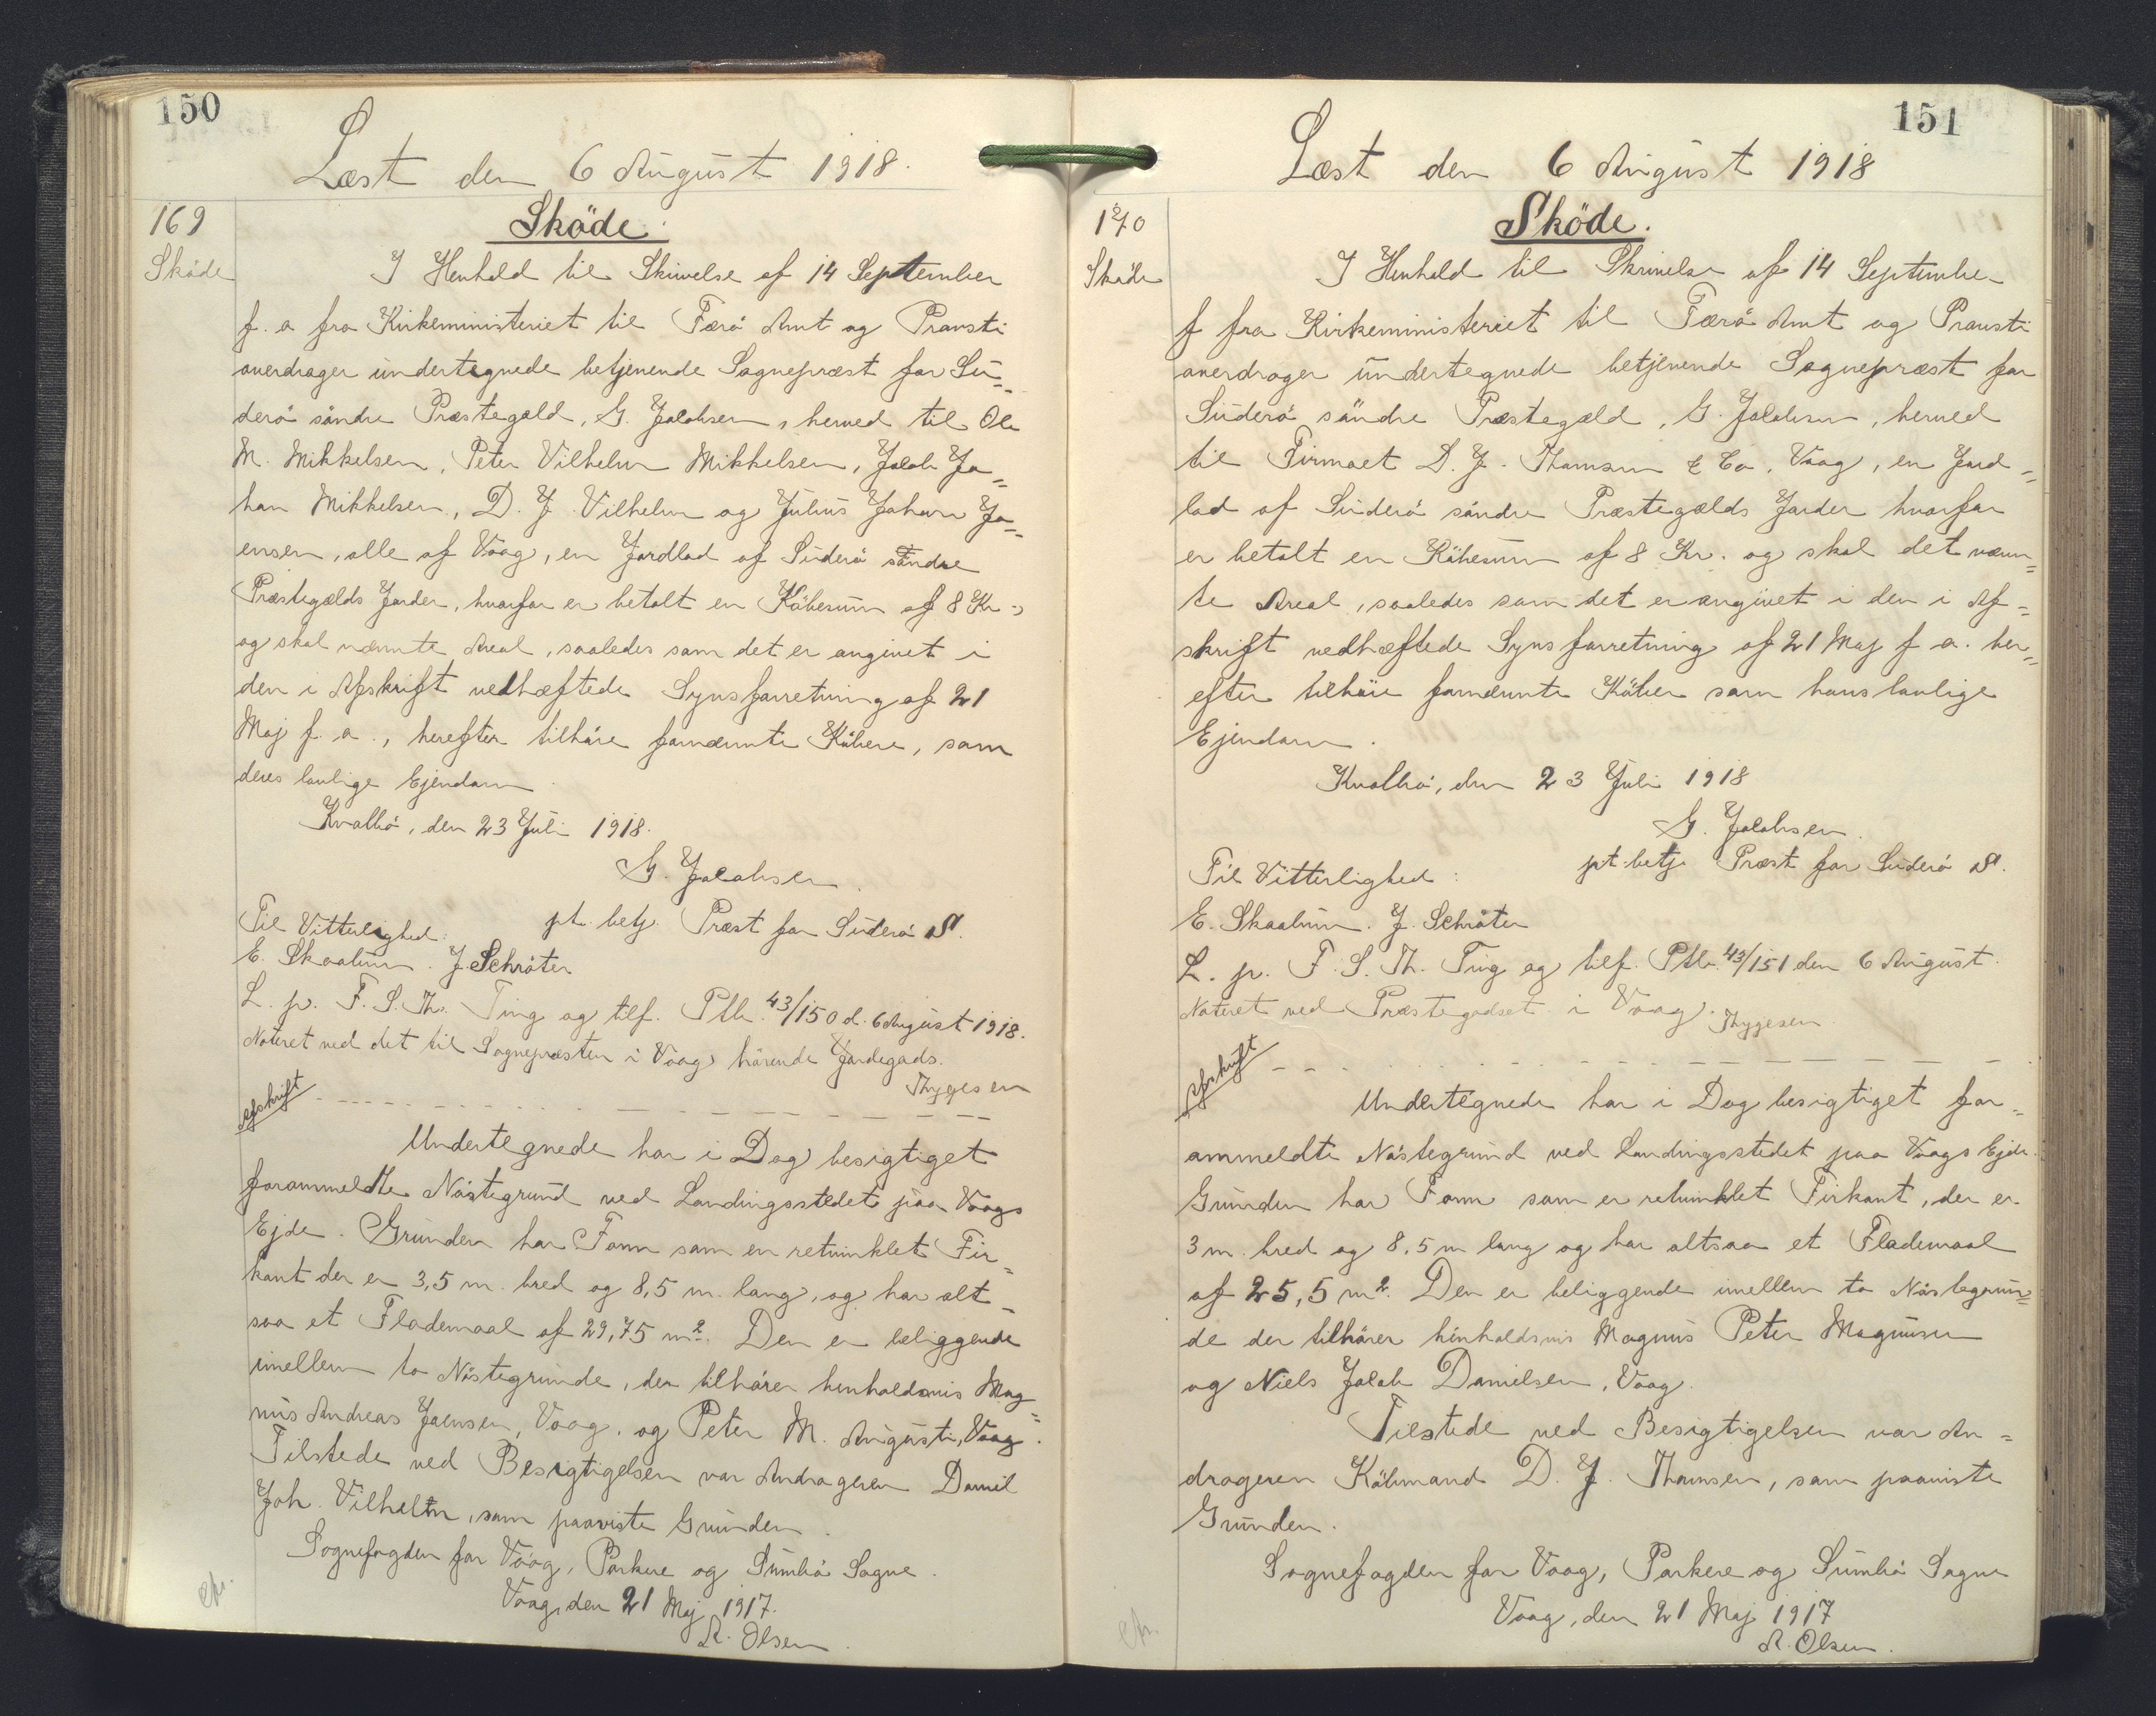 150
Læst den 6 August 1918.
169
Sköde
Sköde.
I Henhold til Skrivelse af 14 September
f. a fra Kirkeministeriet til Færö Amt og Provsti
overdrager undertegnede betjenende Sognepræst for Su=
derö söndre Præstegæld, G. Jacobsen, herved til Ole
M. Mikkelsen, Peter Vilhelm Mikkelsen, Jacob Jo=
han Mikkelsen, D. J. Vilhelm og Julius Johan Jo=
ensen, alle af Vaag, en Jordlod af Suderö söndre
Præstegælds Jorder, hvorfor er betalt en Köbesum af 8 Kr.
og skal nævnte Areal, saaledes som det er angivet i
den i Afskrift vedhæftede Synsforretning af 21
Maj f. a., herefter tilhöre fornævnte Köbere, som
deres lovlige Ejendom.
Kvalbö, den 23 Juli 1918.
G. Jacobsen.
pt. betj. Præst for Suderö S.
Til Vitterlighed:
E. Skaalum. J. Schröter
L. p. F. S. Th. Ting og tilf. Ptb. 43/150 d. 6 August 1918.
Noteret ved det til Sognepræsten i Vaag hörende Jordegods.
Thygesen
Afskrift
Undertegnede har i Dag besigtiget
forommeldte Nöstegrund ved Landingsstedet paa Vaags
Ejde. Grunden har Form som en retvinklet Fir=
kant der er 3,5 m. bred og 8,5 m. lang, og har alt=
saa et Flademaal af 29,75 m2. Den er beliggende
imellem to Nöstegrunde, der tilhörer henholdsvis Mag=
nus Andreas Joensen, Vaag, og Peter M. Augusti, Vaag.
Tilstede ved Besigtigelsen var Andrageren Daniel
Joh. Vilhelm, som paaviste Grunden.
Sognefogden for Vaag, Porkere og Sumbö Sogne.
Vaag, den 21 Maj 1917.
R. Olsen.
151
Læst den 6 August 1918
170
Sköde
Sköde.
I Henhold til Skrivelse af 14 September
f fra Kirkeministeriet til Færö Amt og Provsti
overdrager undertegnede betjenende Sognepræst for
Suderö söndre Præstegæld, G. Jacobsen, herved
til Firmaet D. J. Thomsen & Co, Vaag, en Jord=
lod af Suderö söndre Præstegælds Jorder hvorfor
er betalt en Köbesum af 8 Kr. og skal det nævn=
te Areal, saaledes som det er angivet i den i Af=
skrift vedhæftede Synsforretning af 21 Maj f. a. her=
efter tilhöre fornævnte Köber som hans lovlige
Ejendom.
Kvalbö, den 23 Juli 1918
G. Jacobsen.
pt. betj. Præst for Suderö S.
Til Vitterlighed:
E. Skaalum. J. Schröter
L. p. F. S. Th. Ting og tilf. Ptb. 43/151 den 6 August.
Noteret ved Præstegodset i Vaag.
Thygesen
Afskrift
Undertegnede har i Dag besigtiget for=
ommeldte Nöstegrund ved Landingsstedet paa Vaags Ejde.
Grunden har Form som er retvinklet Firkant, der er
3 m. bred og 8,5 m lang og har altsaa et Flademaal
af 25,5 m2. Den er beliggende imellem to Nöstegrun=
de der tilhörer henholdsvis Magnus Peter Magnusen
og Niels Jacob Danielsen, Vaag.
Tilstede ved Besigtigelsen var An=
drageren Köbmand D. J. Thomsen, som paaviste
Grunden.
Sognefogden for Vaag, Porkere og Sumbö Sogne
Vaag, den 21 Maj 1917
R. Olsen.